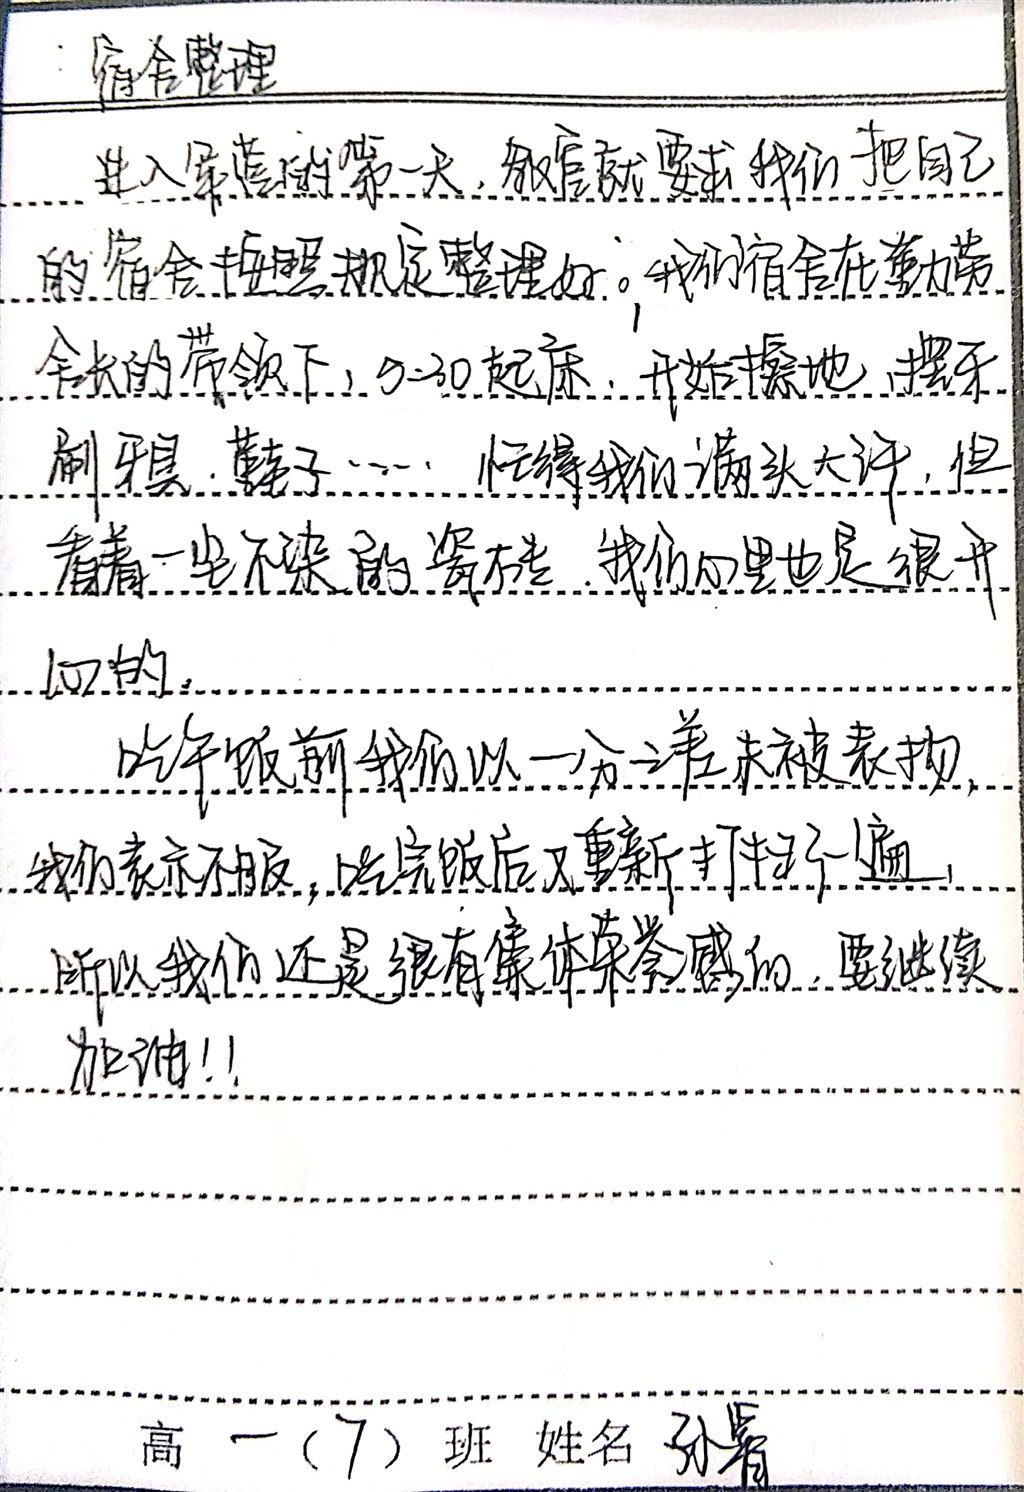 宿舍整理
进入军营的第一天,教官就要求我们把自己
的宿舍按照规定整理好。我们宿舍在勤劳
舍长的带领下,5:30起床,开始擦地,摆牙
刷牙具、鞋子…… 忙得我们满头大汗,但
看着一尘不染的瓷砖,我们心里也是很开
心的。
吃午饭前我们以一分之差未被表扬,
我们表示不服,吃完饭后又重新打扫了一遍,
所以我们还是很有集体荣誉感的,要继续
加油!!
高一(7)班 姓名 孙